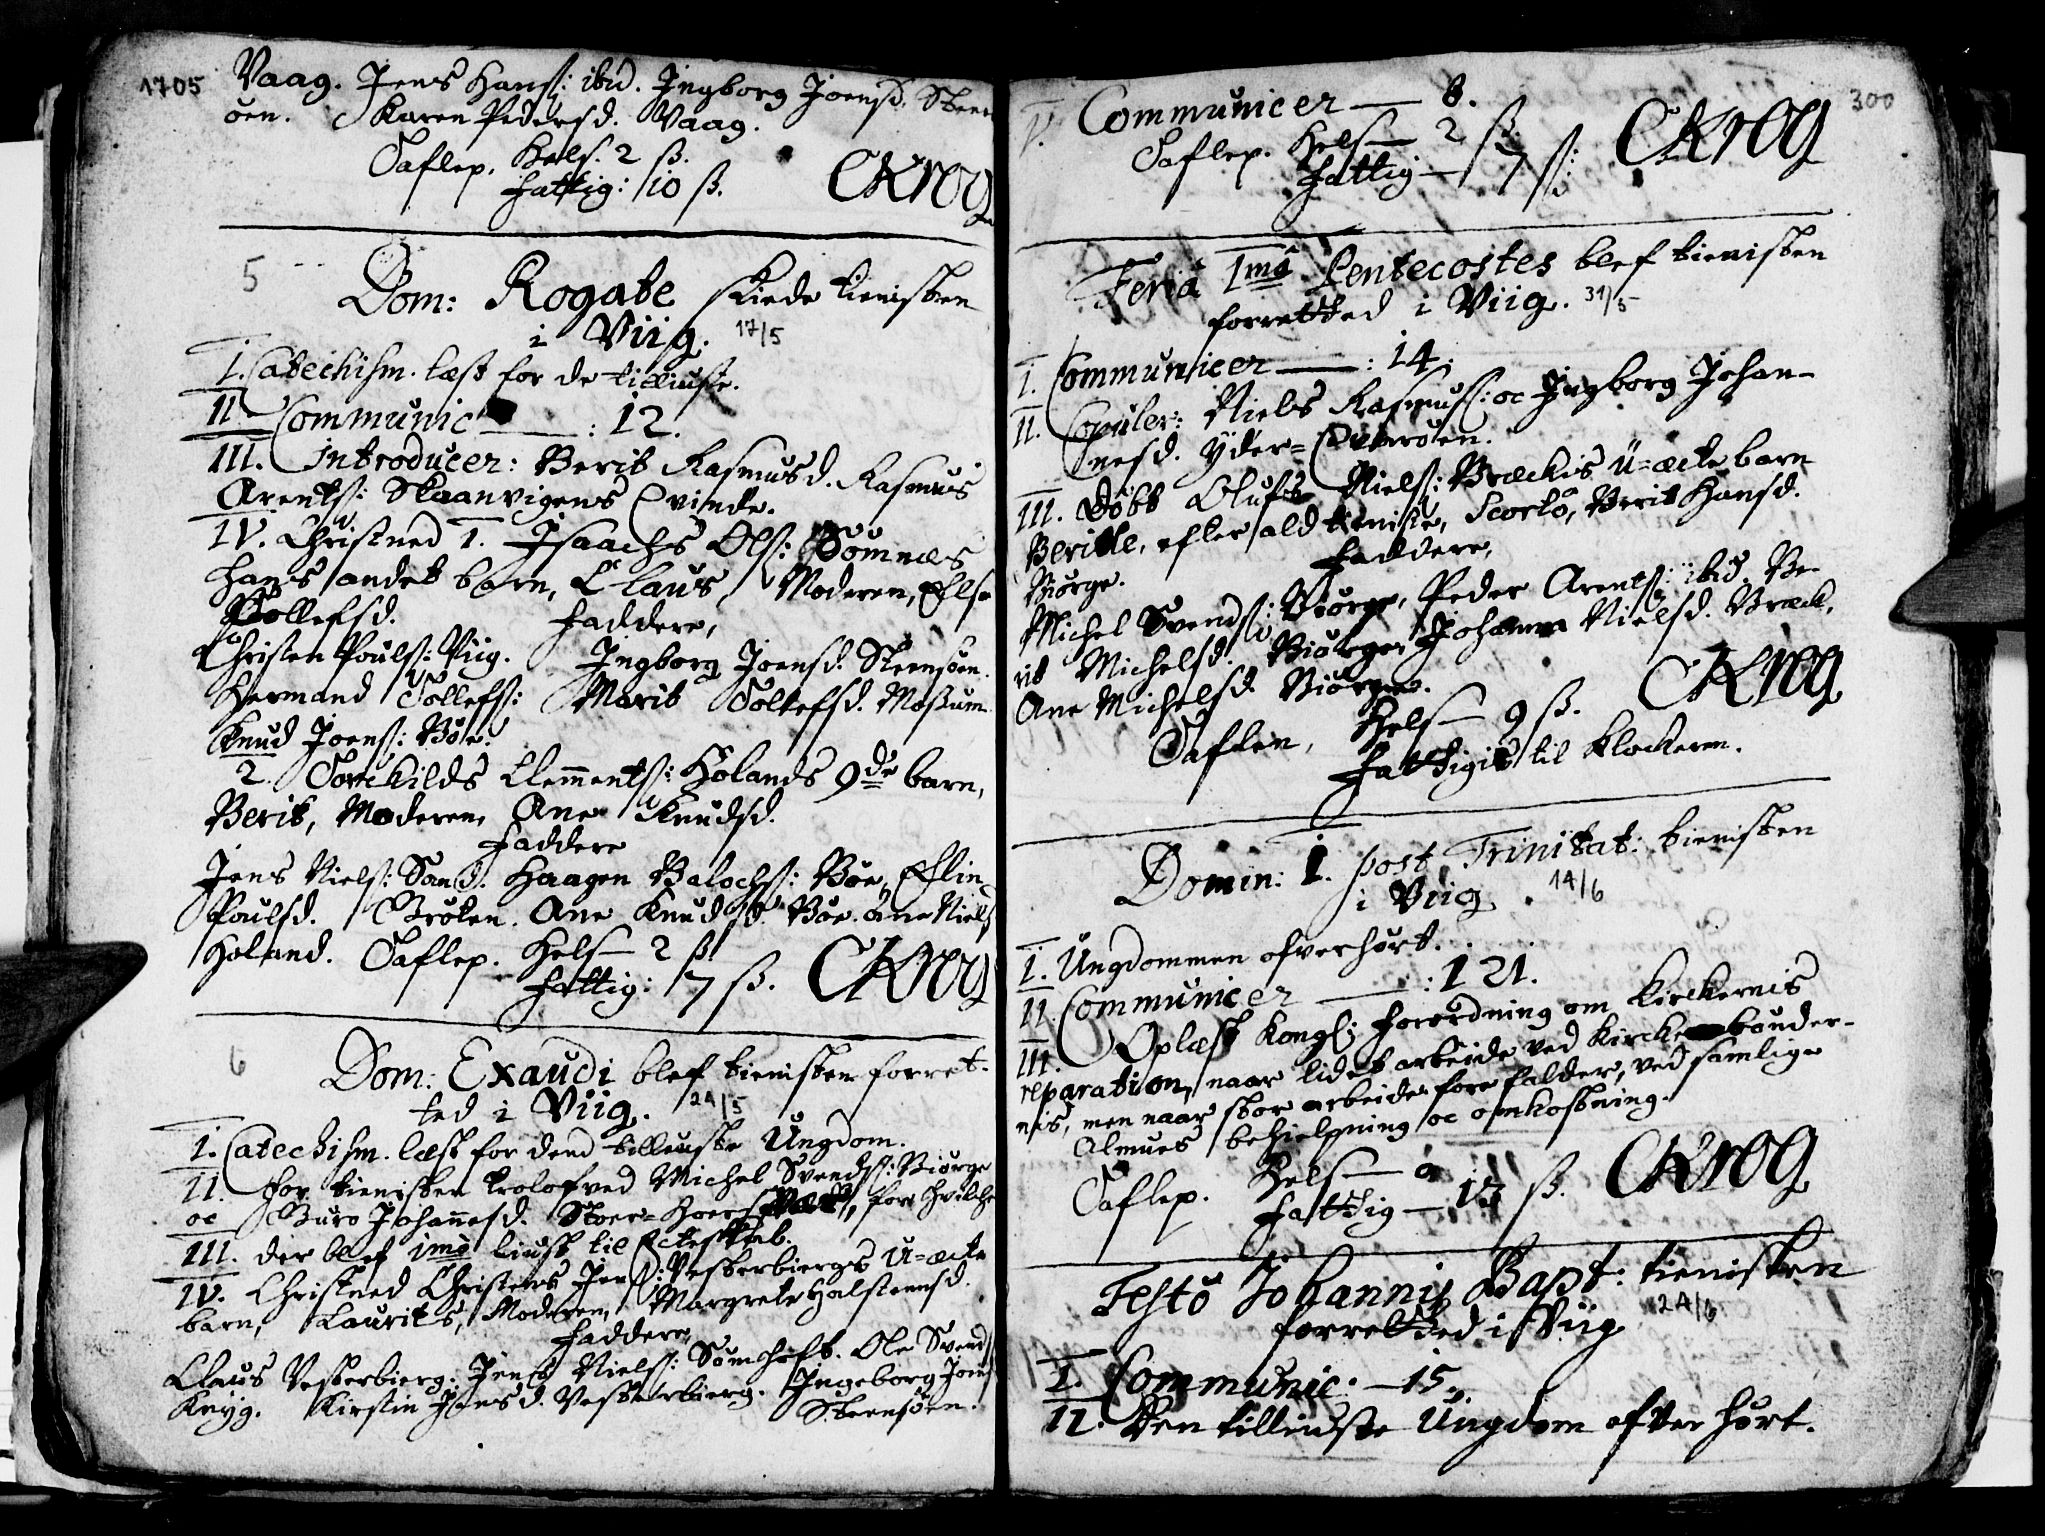 1705
Vaag. Jens Hanss: ibid. Ingborg Joensd. Steens
öen. Karen Pedersd. Vaag.
Taflep. Hels. 2 ß.
fattig: 10 ß. CKrog
5
Dom: Rogate skiede tienisten
i Viig. 17/5
I. Catechism. læst for de tilliuste.
II. Communic : 12.
III. Introducer: Berit Rasmusd. Rasmus
Arentss: Skaanvigens Qvinde.
IV. Christned 1. Isaachs Olss: Sömnæs
hans andet barn, Claus Moderen, Else
Tollefsd. faddere,
Christen Poulss: Viig. Ingborg Joensd. Steensöen.
Hermand Tollefss: Marit Tollefsd. Moßum
Knud Joenss: Böe.
2. Torckilds Clementss: Holands 9de barn,
Berit, Moderen, Ane Knudsd.
faddere
Jens Nielss: Sand. Haagen Balochss: Böe, Elin
Poulsd. Bröten. Ane Knudsd. Böe. Ane Niels
Holand. Taflep. Hels 2 ß
fattig: 7 ß. CKrog
6
Dom: Exaudi blef tienisten forret-
ted i Viig. 24/5
I. Catechism. læst for dend tilleuste Ungdom.
II. for tienisten trolofved Michel Svendss: Biörge
oc Guro Johannesd. Stoer-Hoers for hvilche
III. der blef 1mo liust til Ecteskab.
IV. Christned Christens Jenss: Vesterbiergs u-ecte
barn, Laurits, Moderen, Margrete Halsteensd.
faddere,
Claus Vesterbierg. Jens Nielss: Sömhoft. Ole Svends
Knyg. Kirstin Jensd. Vesterbierg. Ingeborg Joens
Steensöen.
300
V. Communicer — 8.
Taflep. Hels — 2 ß.
fattig — 7 ß: CKrog
Feria 1ma Pentecostes blef tienisten
forretted i Viig. 31/5
I. Communicer — : 14.
II. Copuler: Niels Rasmuss: oc Ingborg Johan-
nesd. Yder-Qvaröen.
III. Döbt Olufs Nielss: Bræckis u-ecte barn
Berette, efter ald tieniste, Scorlo, Berit Hansd.
Biörge. faddere,
Michel Svendss: Biörge, Peder Arentss: ibid. Be-
rit Michelsd. Biörge, Johanna Nielsd. Bræck,
Ane Michelsd. Biörge.
Taflen, Hels — 9 ß. CKrog
fattigis til Klockeren.
Domin: I. post Trinitat: tienisten
i Viig. 14/6
I. Ungdommen ofverhört.
II. Communicer — : 121.
III. Oplæst Kongl: forordning om Kirckernis
reparation, naar lidet arbeide ved Kircke bönder-
nis, men naar stor arbeide fore falder, ved samlige
Almues behielpning oc omkostning.
Taflep. Hels — 0
fattig — 13 ß. CKrog
Festo Johannis Bapt: tienisten
forretted i Viig 24/6
I. Communic: — 15.
II. Den tilliudste Ungdom ofver hört.